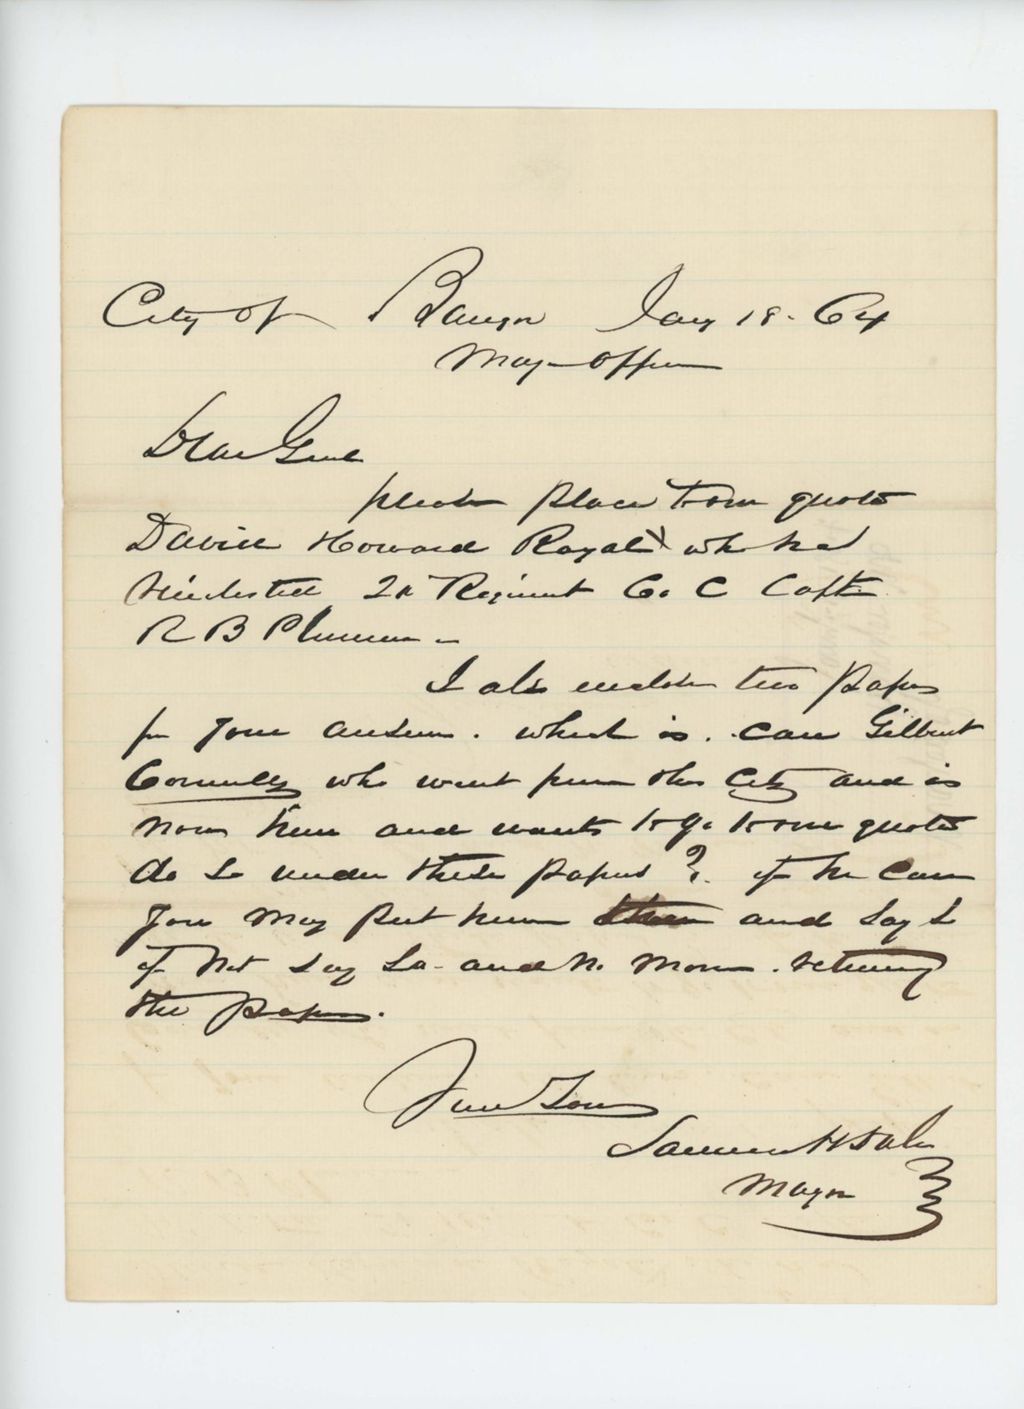 City of Bangor Jany 18. 64
May Office
Dear Genl
please place to our quota
David Howard Royal who has
Reinlisted 2d Regiment Co C Capt
R B Plummer
I also enclose two papers
for your answer. which is. can Gilbert
Connelly who went from this City and is
now here and wants to go to our quota
do so under these papers ? if he can
you may put him and say so
if not say so and no more. returning
the papers.
Yours
Samuel H Dale
Mayor